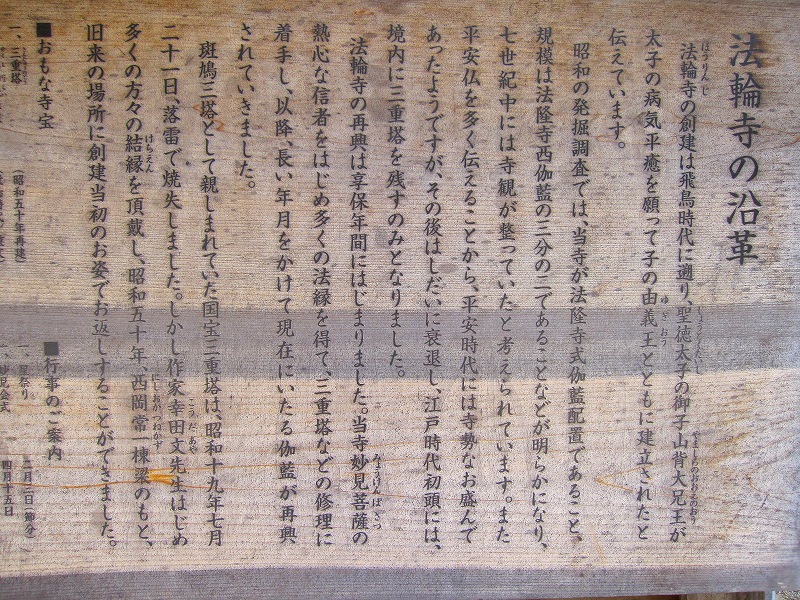 法輪寺の沿革
法輪寺の創建は飛鳥時代に遡り、聖徳太子の御子山背大兄王が
太子の病気平癒を願って子の由義王とともに建立されたと
伝えています。
昭和の発掘調査では、当寺が法隆寺式伽藍配置であること、
規模は法隆寺西伽藍の三分の二であることなどが明らかになり、
七世紀中には寺観が整っていたと考えられています。また
平安仏を多く伝えることから、平安時代には寺勢なお盛んで
あったようですが、その後はしだいに衰退し、江戸時代初頭には、
境内に三重塔を残すのみとなりました。
法輪寺の再興は享保年間にはじまりました。当寺妙見菩薩の
熱心な信者をはじめ多くの法縁を得て、三重塔などの修理に
着手し、以降、長い年月をかけて現在にいたる伽藍が再興
されていきました。
斑鳩三塔として親しまれていた国宝三重塔は、昭和十九年七月
二十一日、落雷で焼失しました。しかし作家幸田文先生はじめ
多くの方々の結縁を頂戴し、昭和五十年、西岡常一棟梁のもと、
旧来の場所に創建当初のお姿でお返しすることができました。
■おもな寺宝
一、三重塔 (昭和五十年再建)
■行事のご案内
一、星祭り 二月三日(節分)
一、妙見会式 四月十五日